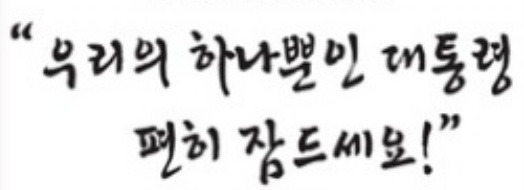 “우리의 하나뿐인 대통령
편히 잠드세요!”